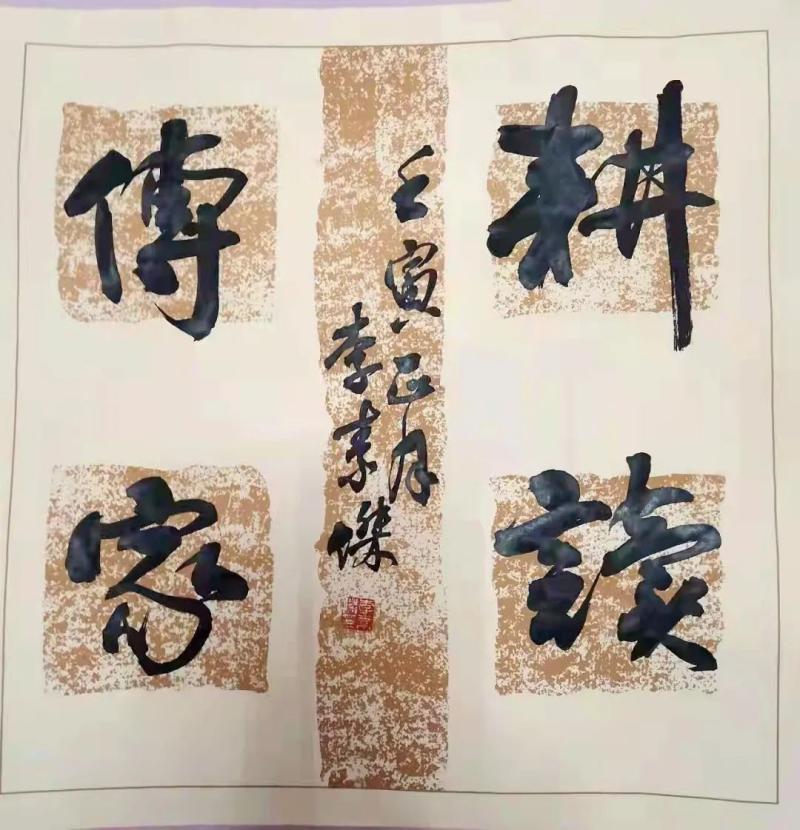 耕讀
傳家
壬寅正月
李素傑